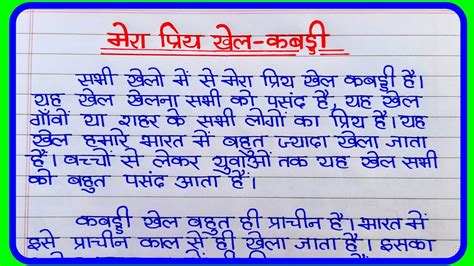 मेरा प्रिय खेल-कबड्डी
सभी खेलो में से मेरा प्रिय खेल कबड्डी हैं।
यह खेल खेलना सभी को पसंद हैं, यह खेल
गाँवों या शहर के सभी लोगों का प्रिय हैं। यह
खेल हमारे भारत में बहुत ज्यादा खेला जाता
हैं। बच्चों से लेकर युवाओं तक यह खेल सभी
को बहुत पसंद आता हैं।
कबड्डी खेल बहुत ही प्राचीन हैं। भारत में
इसे प्राचीन काल से ही खेला जाता हैं। इसका